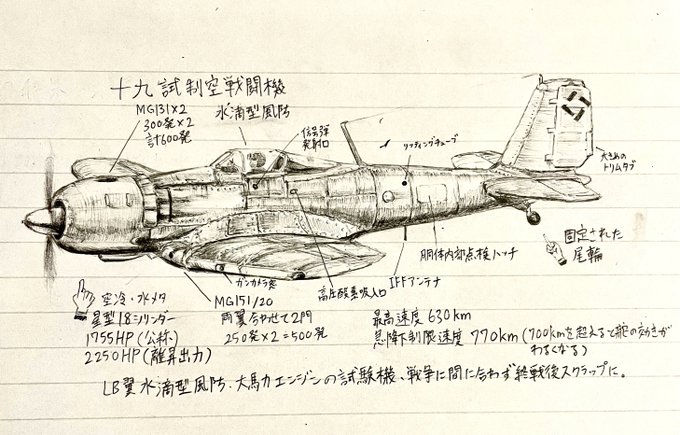 十九試制空戦闘機
MG131×2
300発×2
計600発
水滴型風防
信号弾
発射口
リフティングチューブ
大きめの
トリムタブ
固定された
尾輪
胴体内部点検ハッチ
IFFアンテナ
高圧酸素吸入口
ガンカメラ窓
MG151/20
両翼合わせて2門
250発×2=500発
空冷・水メタ
星型18シリンダー
1755HP(公称)
2250HP(離昇出力)
最高速度 630km
急降下制限速度 770km(700kmを超えると舵の効きが
わるくなる)
LB翼水滴型風防、大馬力エンジンの試験機、戦争に間に合わず終戦後スクラップに。